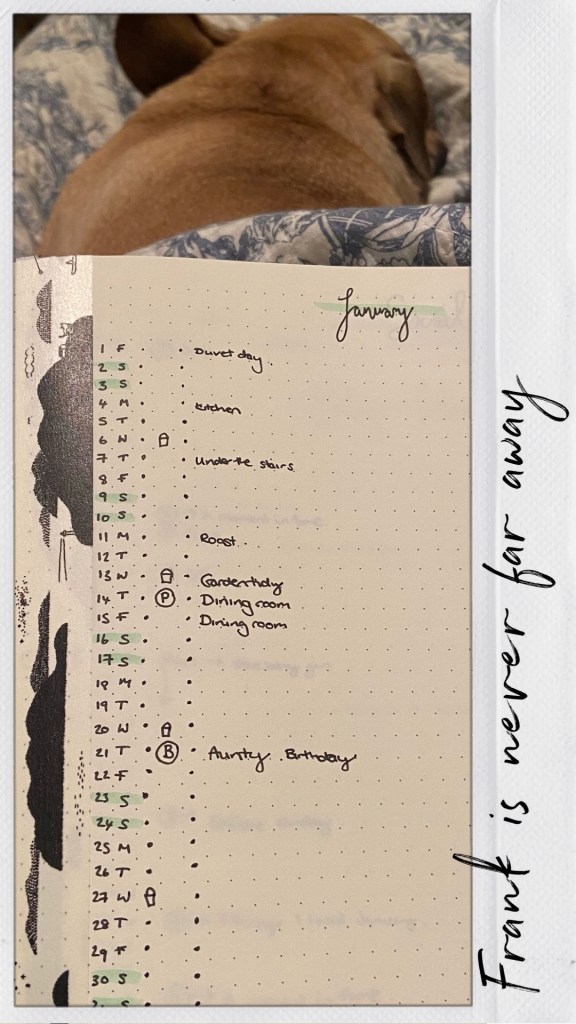 January
1 F Duvet day
2 S
3 S
4 M kitchen
5 T
6 W
7 T Under the stairs
8 F
9 S
10 S
11 M Roast
12 T
13 W Garden tidy
14 T P Dining room
15 F Dining room
16 S
17 S
18 M
19 T
20 W
21 T B Aunty Birthday
22 F
23 S
24 S
25 M
26 T
27 W
28 T
29 F
30 S
S
Frank is never far away